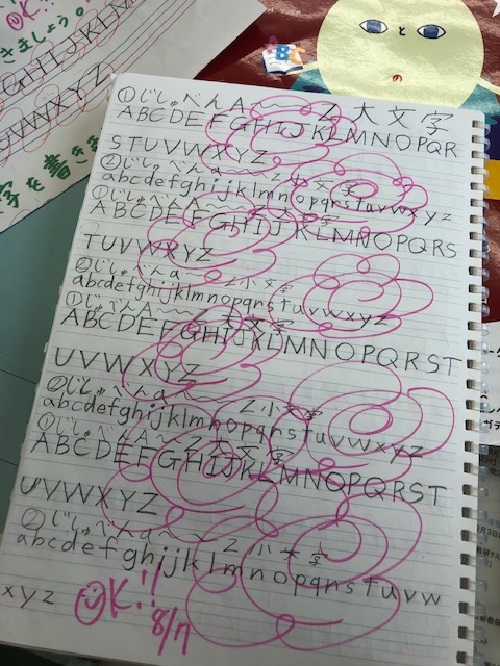 OK!
きましょう。
GHIJKLM
UVWXYZ
字を書き
ABC
と
の
①じしゅべんA〜Z大文字
ABCDEFGHIJKLMNOPQR
STUVWXYZ
②じしゅべんa〜z小文字
abcdefghijklmnopqrstuvwxyz
①じしゅべんA〜Z大文字
ABCDEFGHIJKLMNOPQRS
TUVWXYZ
②じしゅべんa〜z小文字
abcdefghijklmnopqrstuvwxyz
①じしゅべんA〜Z大文字
ABCDEFGHIJKLMNOPQRST
UVWXYZ
②じしゅべんa〜z小文字
abcdefghijklmnopqrstuvwxyz
①じしゅべんA〜Z大文字
ABCDEFGHIJKLMNOPQRST
UVWXYZ
②じしゅべんa〜z小文字
abcdefghijklmnopqrstuvw
xyz
OK!! 8/7